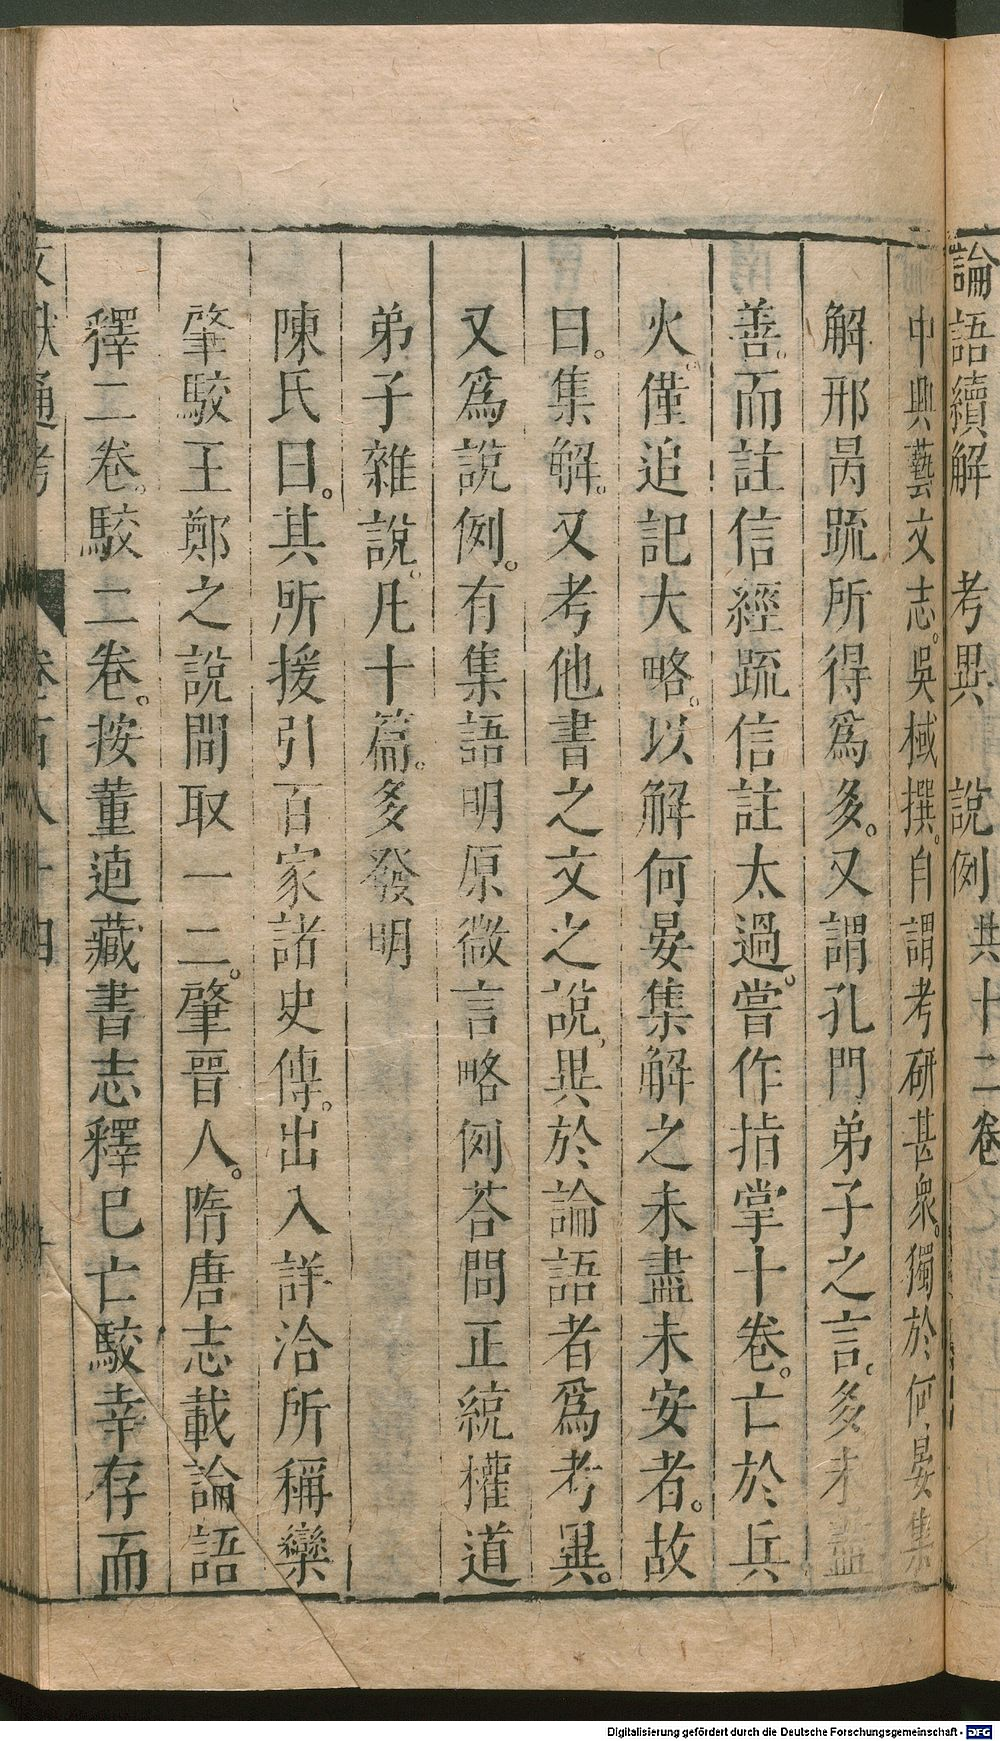 論語續解 考異 說例共十二卷
中興藝文志。吳棫撰。自謂考研甚衆。獨於何晏集
解。邢昺䟽所得爲多。又謂孔門弟子之言。多未盡
善。而註信經䟽信註太過。嘗作指掌十卷。亡於兵
火。僅追記大略。以解何晏集解之未盡未安者。故
曰。集解。又考他書之文之說異於論語者爲考異。
又爲說例。有集語明原微言略例荅問正統權道
弟子雜說。凡十篇。多發明
陳氏曰。其所援引百家諸史傳。出入詳洽所稱欒
肇駮王鄭之說間取一二。肇晉人。隋唐志載論語
釋二卷。駮二卷。按董逌藏書志釋已亡駮幸存而
文獻通考 卷百八十四
Digitalisierung gefördert durch die Deutsche Forschungsgemeinschaft - DFG